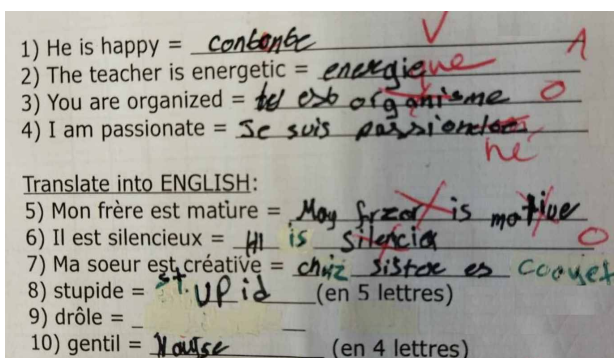 1) He is happy = contonte V
2) The teacher is energetic = energieque A
3) You are organized = est organisme O
4) I am passionate = Je suis
né
Translate into ENGLISH:
5) Mon frère est mature = May frzor is motive
6) Il est silencieux = Hi is silencia O
7) Ma soeur est créative = chuiz sistere es
8) stupide = st.UPid (en 5 lettres)
9) drôle =
10) gentil = (en 4 lettres)